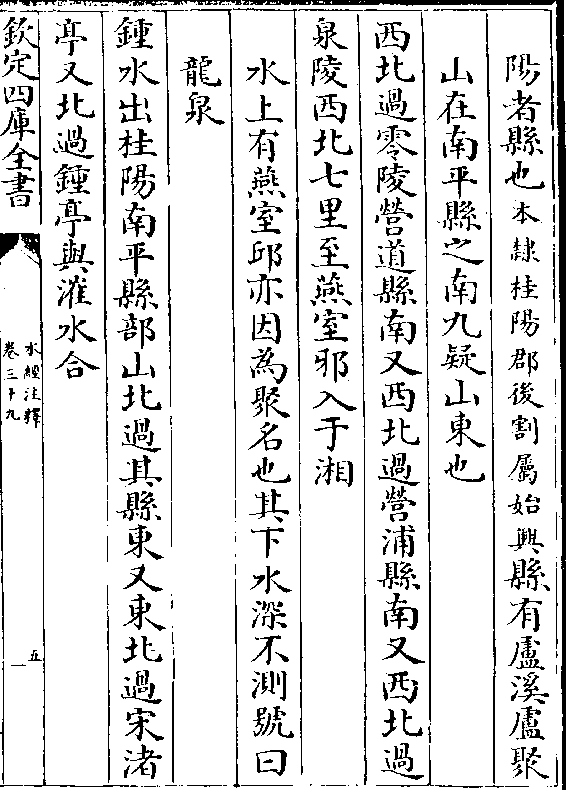 陽者縣也本隷桂陽郡後割屬始興縣有盧溪盧聚
山在南平縣之南九疑山東也
西北過零陵營道縣南又西北過營浦縣南又西北過
泉陵西北七里至燕室邪入于湘
水上有燕室邱亦因為聚名也其下水深不測號曰
龍泉
鍾水出桂陽南平縣部山北過其縣東又東北過宋渚
亭又北過鍾亭與漼水合
欽定四庫全書
水經注釋
卷三十九
五